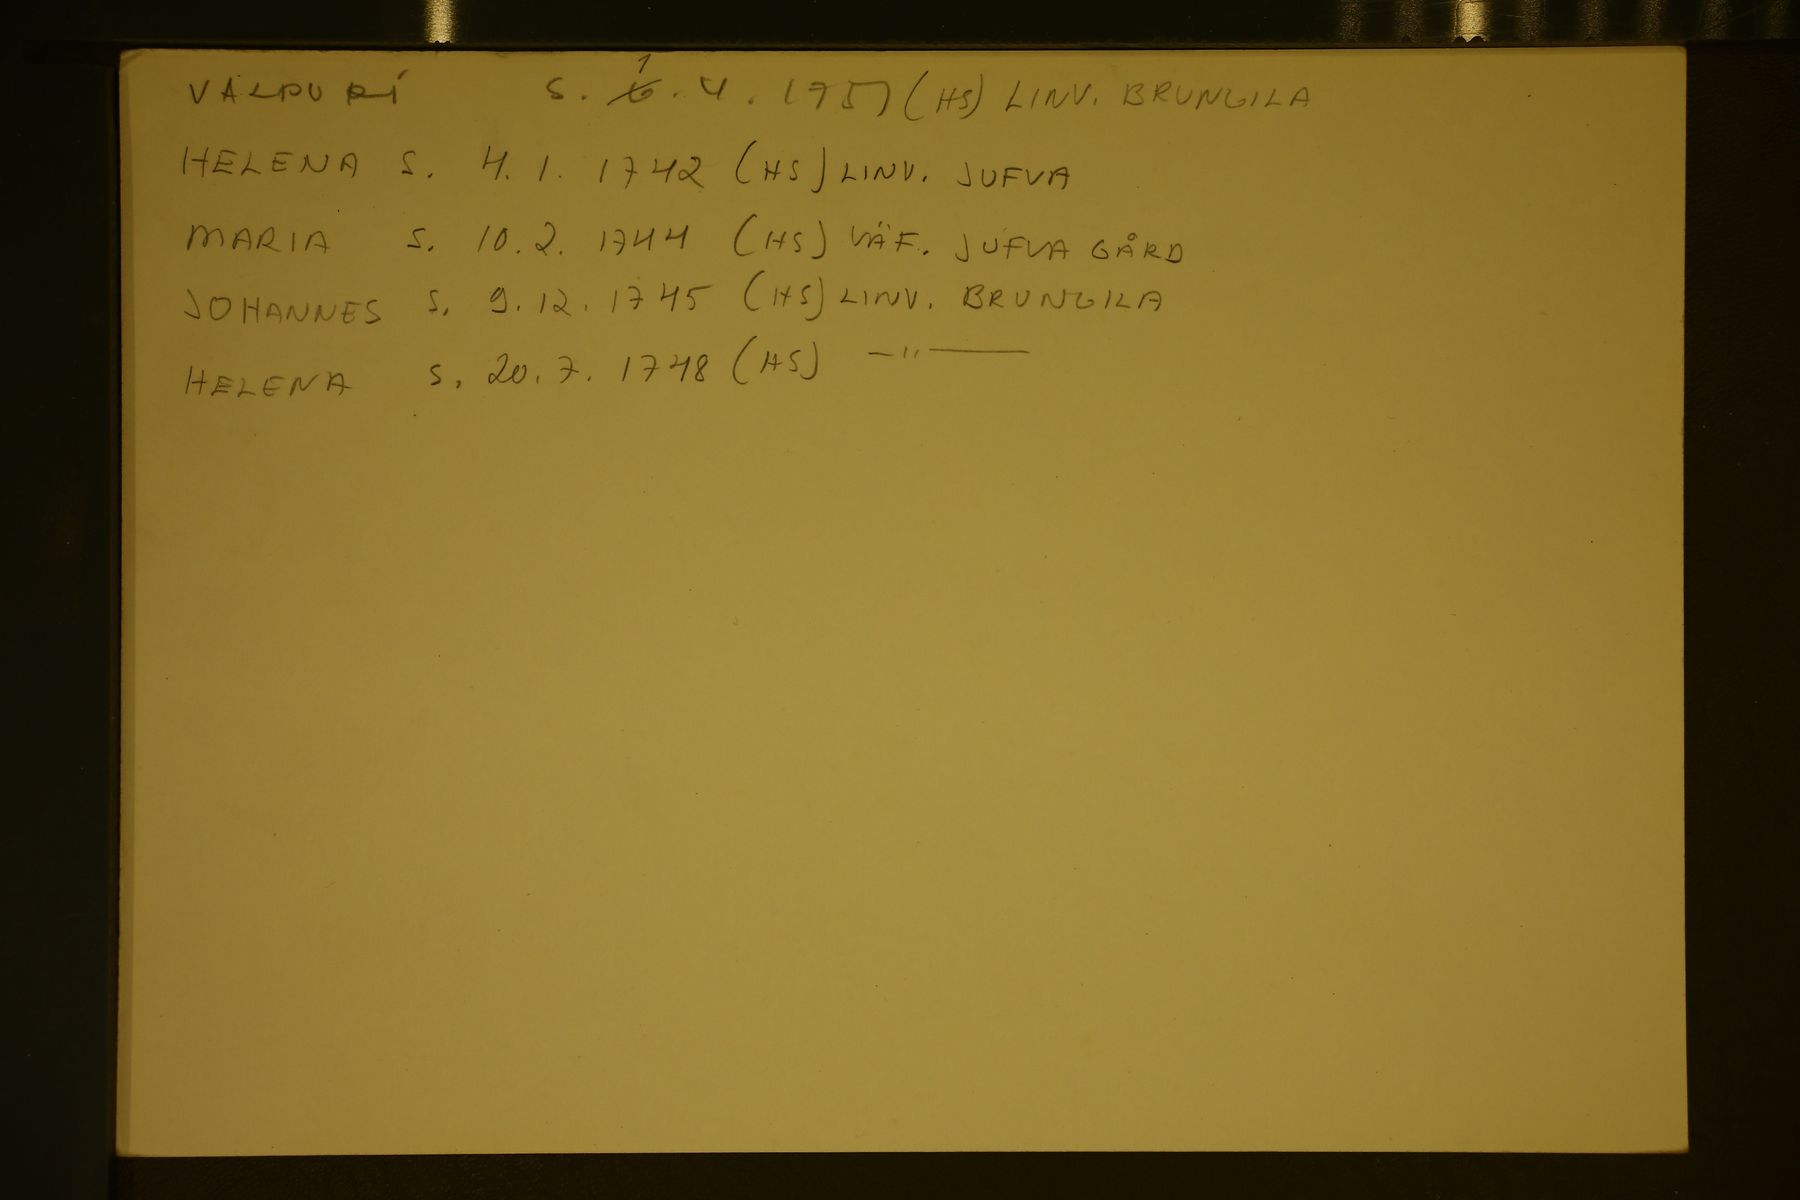 VALPURI S. 1.4.1751 (HS) LINV. BRUNGILA
HELENA S. 4.1.1742 (HS) LINV. JUFVA
MARIA S. 10.2.1744 (HS) VÄF. JUFVA GÅRD
JOHANNES S. 9.12.1745 (HS) LINV. BRUNGILA
HELENA S. 20.7.1748 (HS) —"—